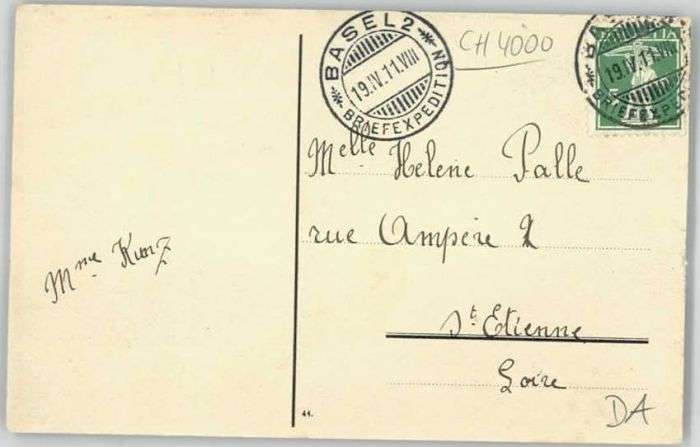 BASEL 2
19.IV.11.VIII
BRIEFEXPEDITION
CH 4000
19.IV.11.VIII
BRIEFEXPED
Melle Helene Palle
rue Ampère 2
St. Etienne
Loire
Mme Kunz
44.
DA